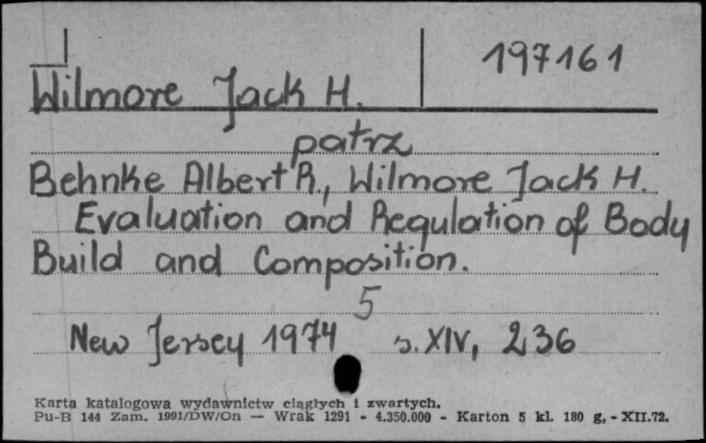 197161
Wilmore Jack H.
patrz
Behnke Albert R., Wilmore Jack H.
Evaluation and Regulation of Body
Build and Composition.
5
New Jersey 1974 s. XIV, 236
Karta katalogowa wydawnictw ciągłych i zwartych.
Pu-B 144 Zam. 1991/DW/On — Wrak 1291 - 4.350.000 - Karton 5 kl. 180 g, - XII.72.